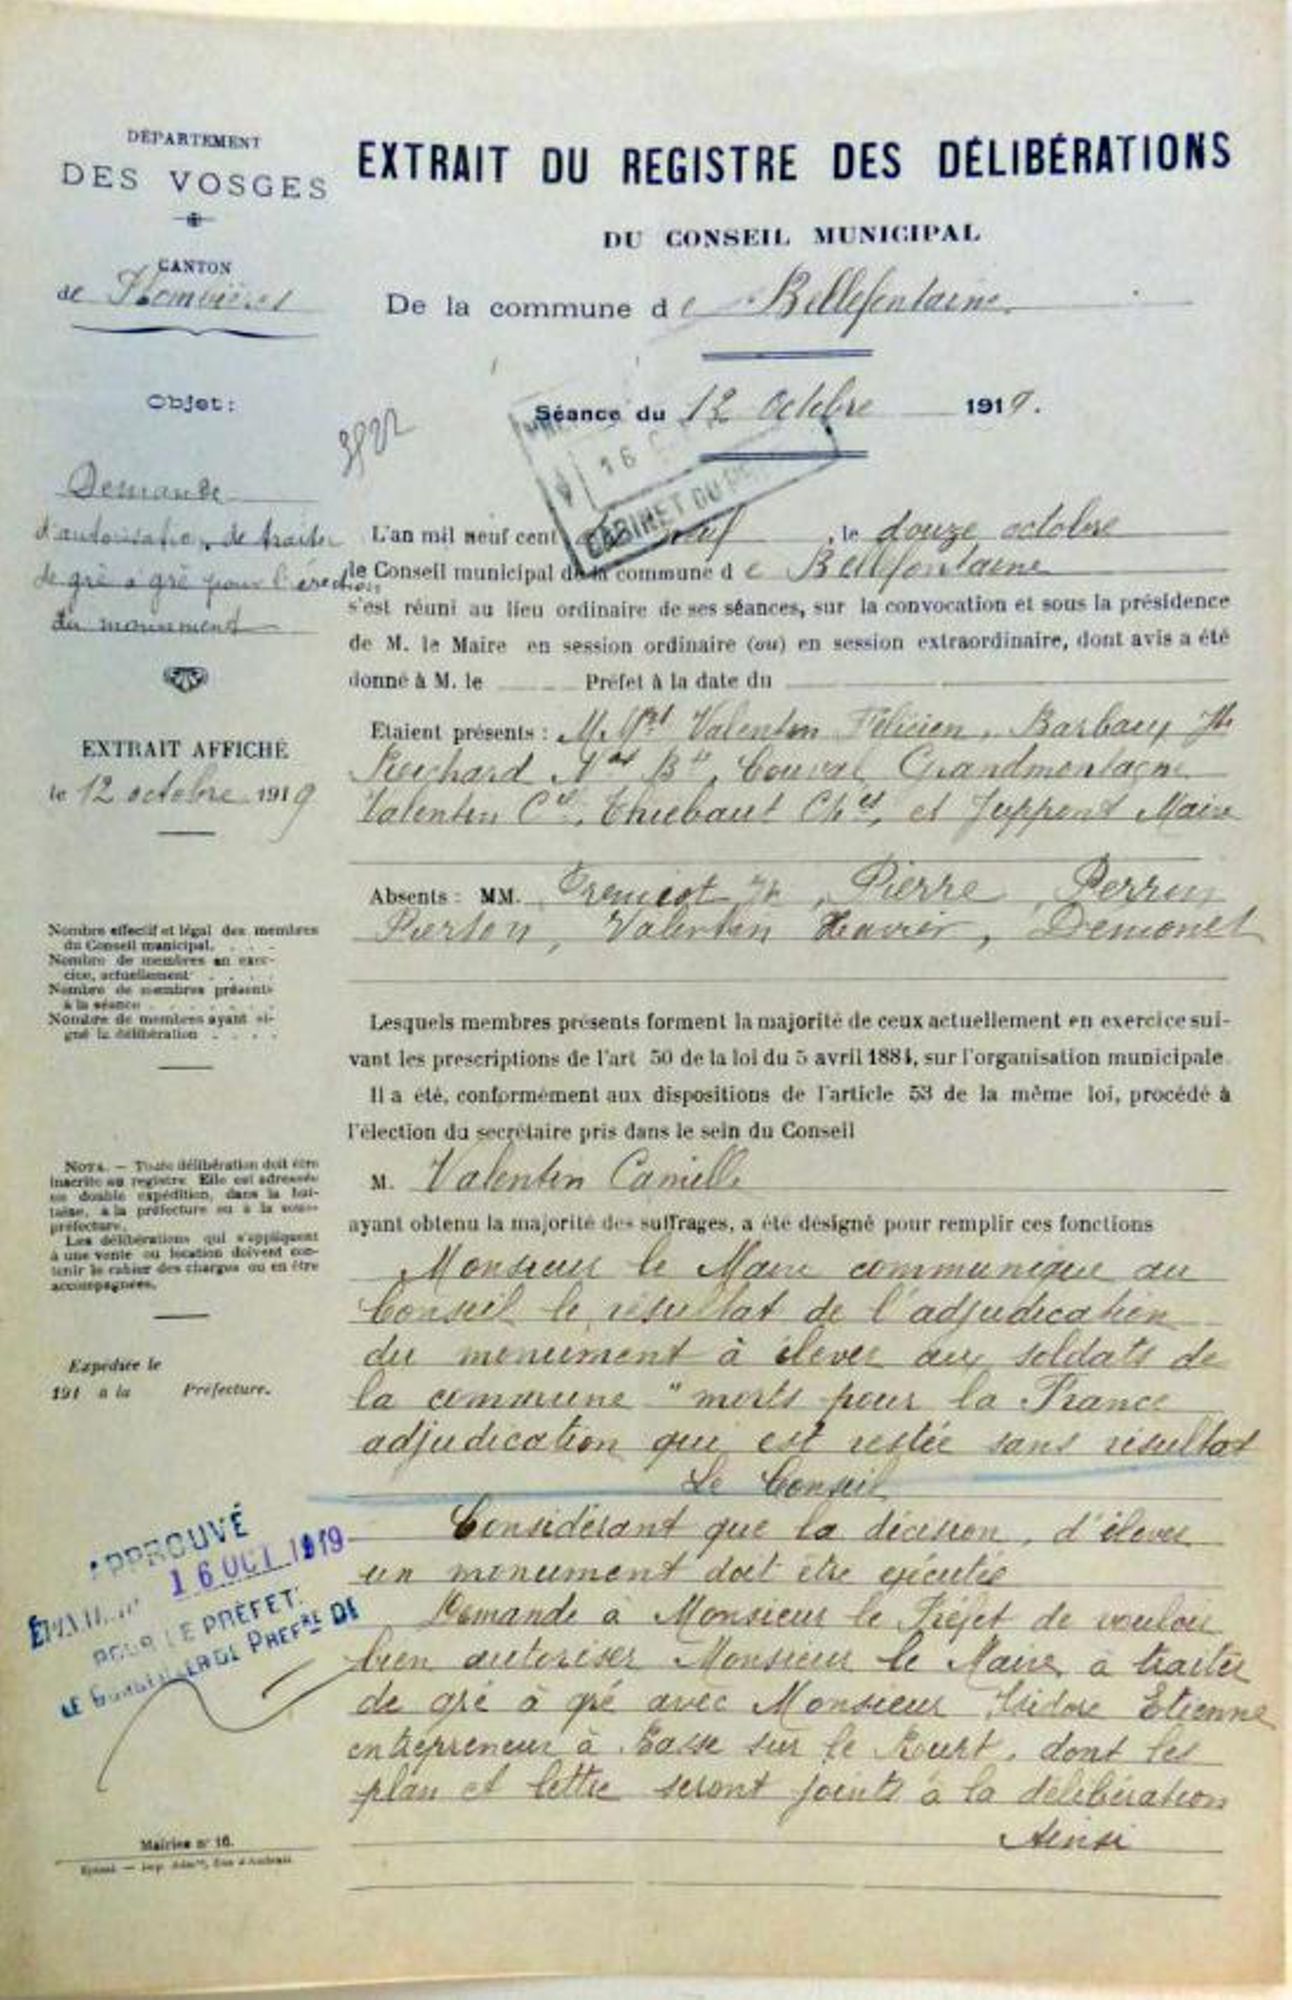 DÉPARTEMENT
DES VOSGES
CANTON
de Plombières
Objet:
Demande
d'autorisation de traiter
de gré à gré pour l'érection
du monument
EXTRAIT AFFICHÉ
le 12 octobre 1919
Nombre effectif et légal des membres
du Conseil municipal. . . .
Nombre de membres en exer-
cice, actuellement . . . .
Nombre de membres présents
à la séance . . . .
Nombre de membres ayant si-
gné la délibération . . . .
NOTA. — Toute délibération doit être
inscrite au registre. Elle est adressée
en double expédition, dans la hui-
taine, à la préfecture ou à la sous-
préfecture.
Les délibérations qui s'appliquent
à une vente ou location doivent con-
tenir le cahier des charges ou en être
accompagnées.
Expédiée le
191 à la Préfecture.
APPROUVÉ
16 OCT 1919
POUR LE PRÉFET:
LE CONSEILLER DE PREFre DE
Mairies n° 16.
EXTRAIT DU REGISTRE DES DÉLIBÉRATIONS
DU CONSEIL MUNICIPAL
De la commune de Bellefontaine
Séance du 12 Octobre 1919.
3822
16
CABINET DU
L'an mil neuf cent neuf , le douze octobre
le Conseil municipal de la commune de Bellefontaine
s'est réuni au lieu ordinaire de ses séances, sur la convocation et sous la présidence
de M. le Maire en session ordinaire (ou) en session extraordinaire, dont avis a été
donné à M. le Préfet à la date du
Etaient présents : M.M. Valentin Félicien, Barbaux Jh
Bt, Couval, Grandmontagne
Valentin Cle, Thiébaut Chles, et Juppont Maire
Absents : MM. Jh, Pierre, Perrin
Pierson, Valentin Xavier, Demonet
Lesquels membres présents forment la majorité de ceux actuellement en exercice sui-
vant les prescriptions de l'art 50 de la loi du 5 avril 1884, sur l'organisation municipale
Il a été, conformément aux dispositions de l'article 53 de la même loi, procédé à
l'élection du secrétaire pris dans le sein du Conseil
M. Valentin Camille
ayant obtenu la majorité des suffrages, a été désigné pour remplir ces fonctions
Monsieur le Maire communique au
Conseil le résultat de l'adjudication
du monument à élever aux soldats de
la commune "morts pour la France
adjudication qui est restée sans résultat
Le Conseil
Considérant que la décision, d'élever
un monument doit être exécutée
Demande à Monsieur le Préfet de vouloir
bien autoriser Monsieur le Maire à traiter
de gré à gré avec Monsieur Isidore Etienne
entrepreneur à Basse sur le Rupt, dont les
plan et lettre seront joints à la délibération
Ainsi